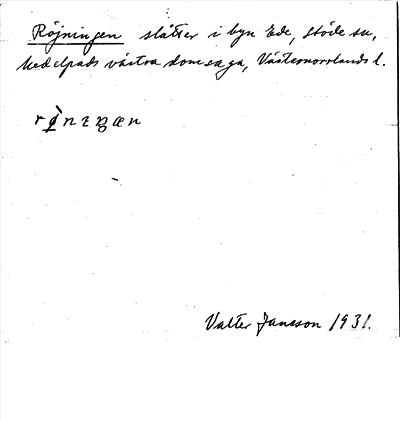 Röjningen slåtter i byn Ede, Stöde sn,
Medelpads västra domsaga, Västernorrlands l.
Valter Jansson 1931.